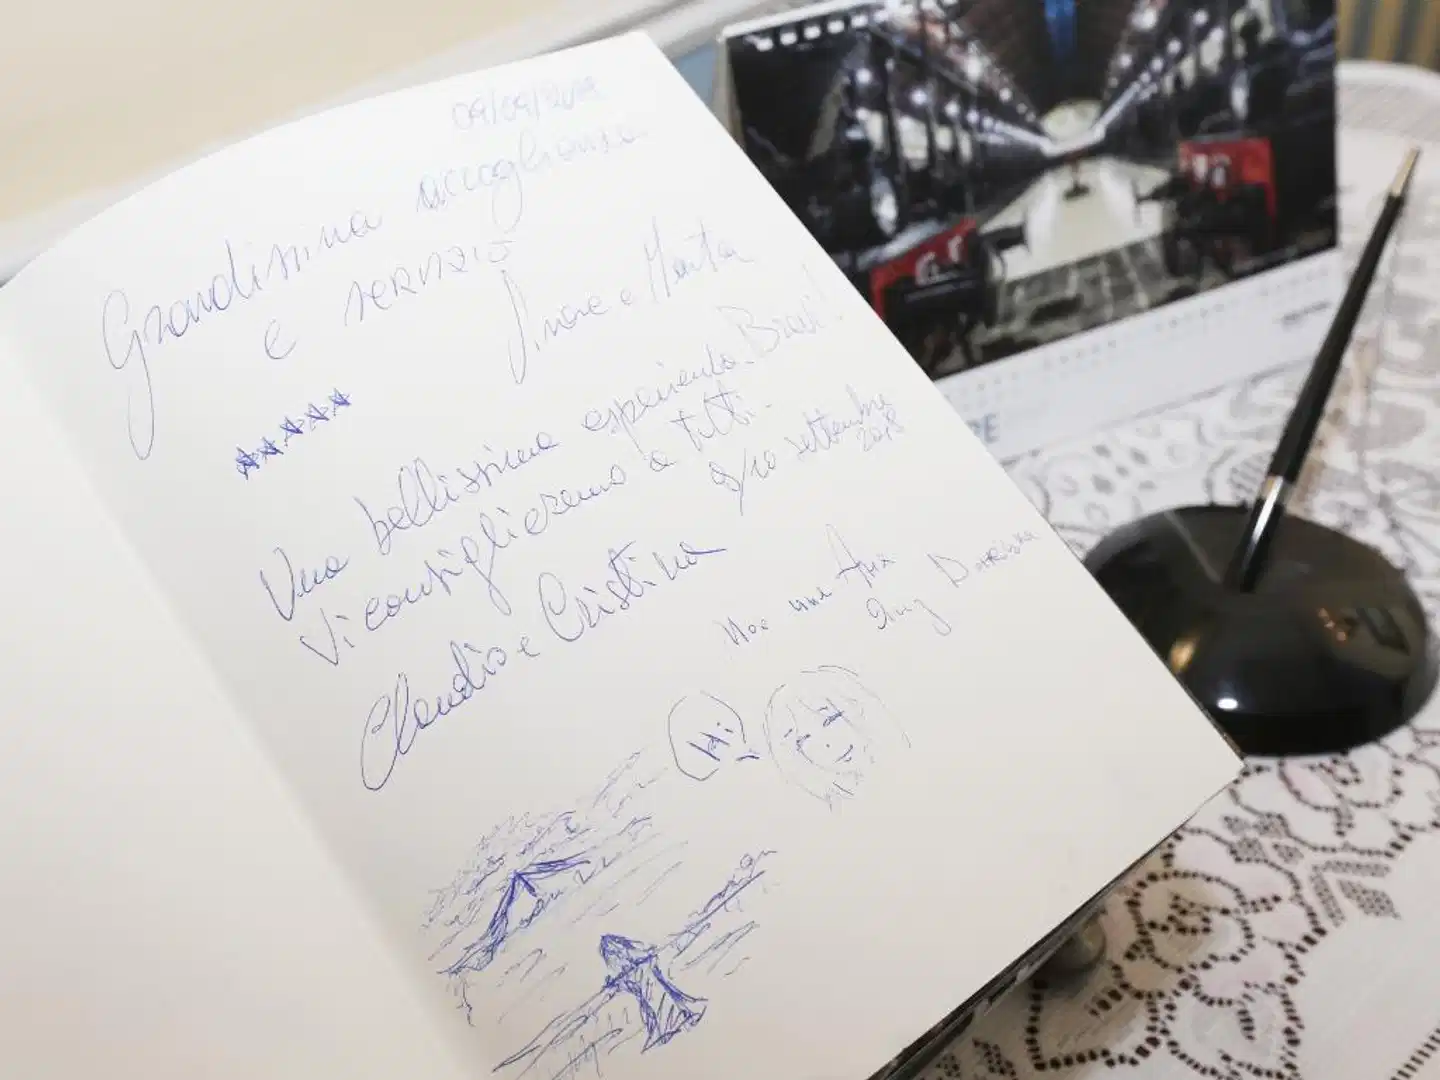 09/09/2018
Grandissima accoglienza
e servizio
e Marta
Una bellissima esperienza. Bravi!
Vi consiglieremo a tutti.
9/10 settembre
2018
Claudio e Cristina
Hi